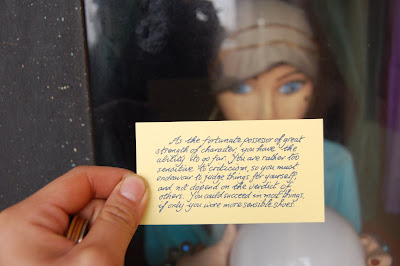 As the fortunate possessor of great
strength of character, you have the
ability to go far. You are rather too
sensitive to criticism, so you must
endeavour to judge things for yourself,
and not depend on the verdict of
others. You could succeed in most things,
if only you wore more sensible shoes.